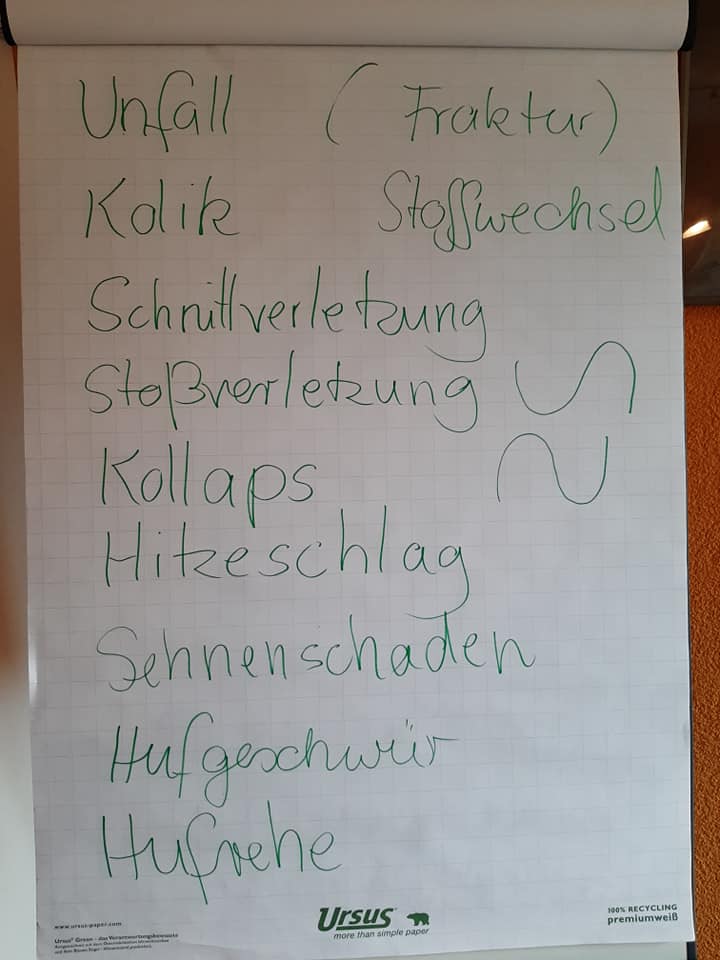 Unfall ( Fraktur)
Kolik Stoffwechsel
Schnittverletzung
Stoßverletzung
Kollaps
Hitzeschlag
Sehnenschaden
Hufgeschwür
Hufrehe
www.ursus-paper.com
Ursus® Green - das Verantwortungsbewusste
Ursus®
more than simple paper
100% RECYCLING
premiumweiß